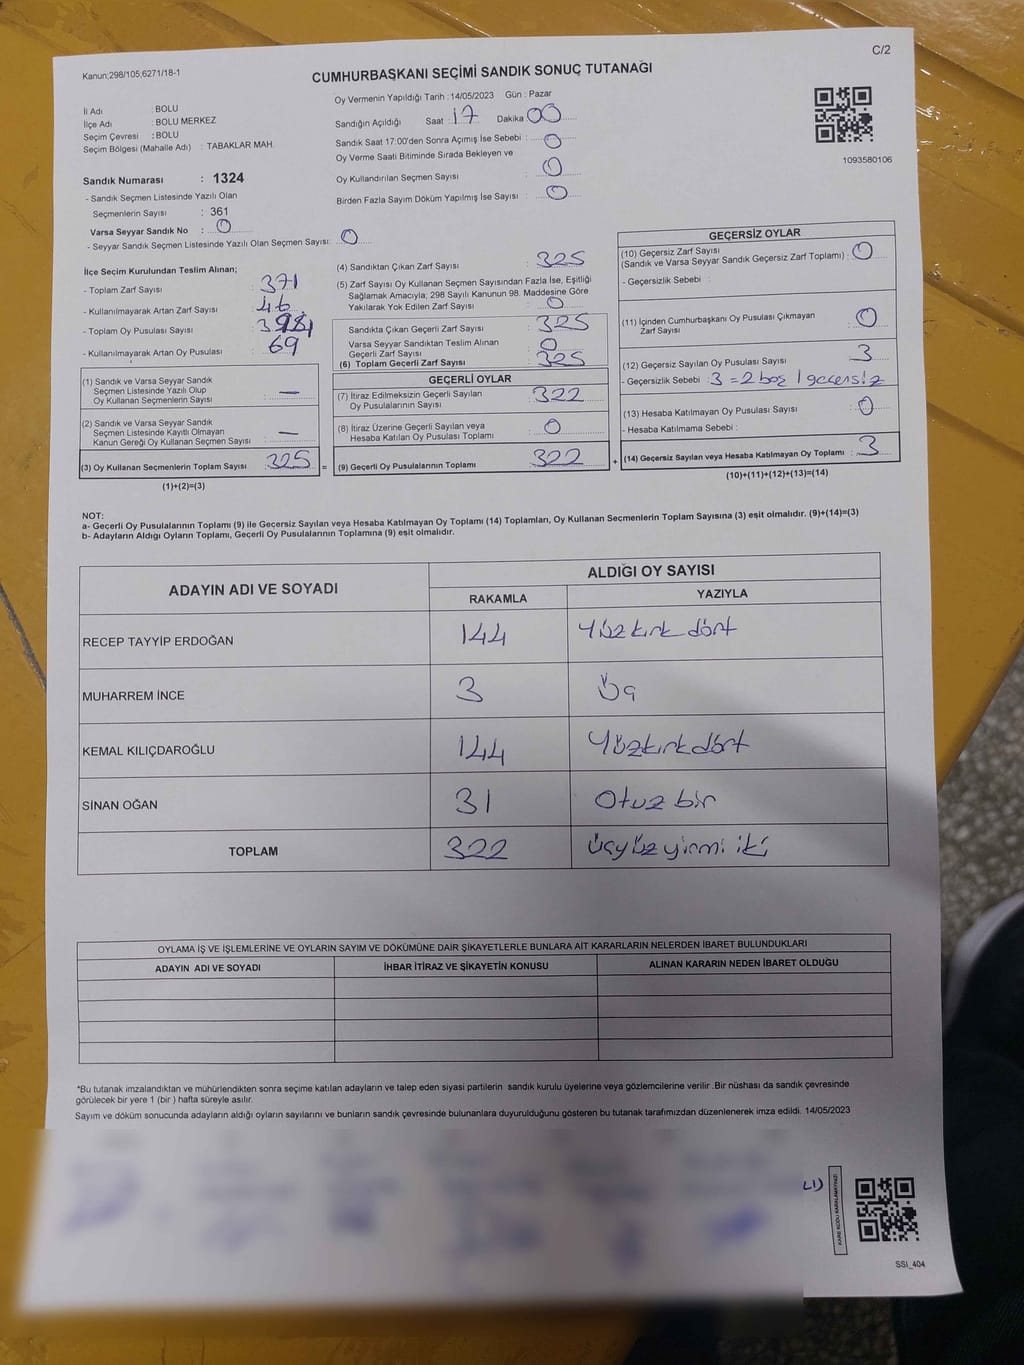 C/2
Kanun;298/105;6271/18-1
CUMHURBAŞKANI SEÇİMİ SANDIK SONUÇ TUTANAĞI
İl Adı : BOLU
İlçe Adı : BOLU MERKEZ
Seçim Çevresi : BOLU
Seçim Bölgesi (Mahalle Adı) : TABAKLAR MAH.
Oy Vermenin Yapıldığı Tarih :14/05/2023 Gün : Pazar
Sandığın Açıldığı Saat : 17 Dakika 00
Sandık Saat 17:00'den Sonra Açımış İse Sebebi : 0
Oy Verme Saati Bitiminde Sırada Bekleyen ve
Oy Kullandırılan Seçmen Sayısı : 0
Birden Fazla Sayım Döküm Yapılmış İse Sayısı : 0
1093580106
Sandık Numarası : 1324
- Sandık Seçmen Listesinde Yazılı Olan
Seçmenlerin Sayısı : 361
Varsa Seyyar Sandık No : 0
- Seyyar Sandık Seçmen Listesinde Yazılı Olan Seçmen Sayısı: 0
İlçe Seçim Kurulundan Teslim Alınan;
- Toplam Zarf Sayısı : 371
- Kullanılmayarak Artan Zarf Sayısı : 46
- Toplam Oy Pusulası Sayısı :
- Kullanılmayarak Artan Oy Pusulası : 69
(1) Sandık ve Varsa Seyyar Sandık
Seçmen Listesinde Yazılı Olup
Oy Kullanan Seçmenlerin Sayısı : —
(2) Sandık ve Varsa Seyyar Sandık
Seçmen Listesinde Kayıtlı Olmayan
Kanun Gereği Oy Kullanan Seçmen Sayısı : —
(3) Oy Kullanan Seçmenlerin Toplam Sayısı : 325 =
(1)+(2)=(3)
(4) Sandıktan Çıkan Zarf Sayısı : 325
(5) Zarf Sayısı Oy Kullanan Seçmen Sayısından Fazla İse, Eşitliği
Sağlamak Amacıyla; 298 Sayılı Kanunun 98. Maddesine Göre
Yakılarak Yok Edilen Zarf Sayısı : 0
Sandıkta Çıkan Geçerli Zarf Sayısı : 325
Varsa Seyyar Sandıktan Teslim Alınan
Geçerli Zarf Sayısı : 0
(6) Toplam Geçerli Zarf Sayısı : 325
GEÇERLİ OYLAR
(7) İtiraz Edilmeksizin Geçerli Sayılan
Oy Pusulalarının Sayısı : 322
(8) İtiraz Üzerine Geçerli Sayılan veya
Hesaba Katılan Oy Pusulası Toplamı : 0
(9) Geçerli Oy Pusulalarının Toplamı : 322 +
GEÇERSİZ OYLAR
(10) Geçersiz Zarf Sayısı
(Sandık ve Varsa Seyyar Sandık Geçersiz Zarf Toplamı) : 0
- Geçersizlik Sebebi :
(11) İçinden Cumhurbaşkanı Oy Pusulası Çıkmayan
Zarf Sayısı : 0
(12) Geçersiz Sayılan Oy Pusulası Sayısı : 3
- Geçersizlik Sebebi : 3 = 2 boş 1 geçersiz
(13) Hesaba Katılmayan Oy Pusulası Sayısı : 0
- Hesaba Katılmama Sebebi :
(14) Geçersiz Sayılan veya Hesaba Katılmayan Oy Toplamı : 3
(10)+(11)+(12)+(13)=(14)
NOT:
a- Geçerli Oy Pusulalarının Toplamı (9) ile Gecersiz Sayılan veya Hesaba Katılmayan Oy Toplamı (14) Toplamları, Oy Kullanan Seçmenlerin Toplam Sayısına (3) eşit olmalıdır. (9)+(14)=(3)
b- Adayların Aldığı Oyların Toplamı, Geçerli Oy Pusulalarının Toplamına (9) eşit olmalıdır.
ADAYIN ADI VE SOYADI ALDIĞI OY SAYISI
RAKAMLA YAZIYLA
RECEP TAYYİP ERDOĞAN 144 Yüzkırk dört
MUHARREM İNCE 3 Üç
KEMAL KILIÇDAROĞLU 144 Yüzkırkdört
SİNAN OĞAN 31 Otuz bir
TOPLAM 322 Üçyüz yirmi iki
OYLAMA İŞ VE İŞLEMLERİNE VE OYLARIN SAYIM VE DÖKÜMÜNE DAİR ŞİKAYETLERLE BUNLARA AİT KARARLARIN NELERDEN İBARET BULUNDUKLARI
ADAYIN ADI VE SOYADI İHBAR İTİRAZ VE ŞİKAYETİN KONUSU ALINAN KARARIN NEDEN İBARET OLDUĞU
*Bu tutanak imzalandıktan ve mühürlendikten sonra seçime katılan adayların ve talep eden siyasi partilerin sandık kurulu üyelerine veya gözlemcilerine verilir .Bir nüshası da sandık çevresinde
görülecek bir yere 1 (bir ) hafta süreyle asılır.
Sayım ve döküm sonucunda adayların aldığı oyların sayılarını ve bunların sandık çevresinde bulunanlara duyurulduğunu gösteren bu tutanak tarafımızdan düzenlenerek imza edildi. 14/05/2023
KARE KODU KARALAMAYINIZ!
SSI_404